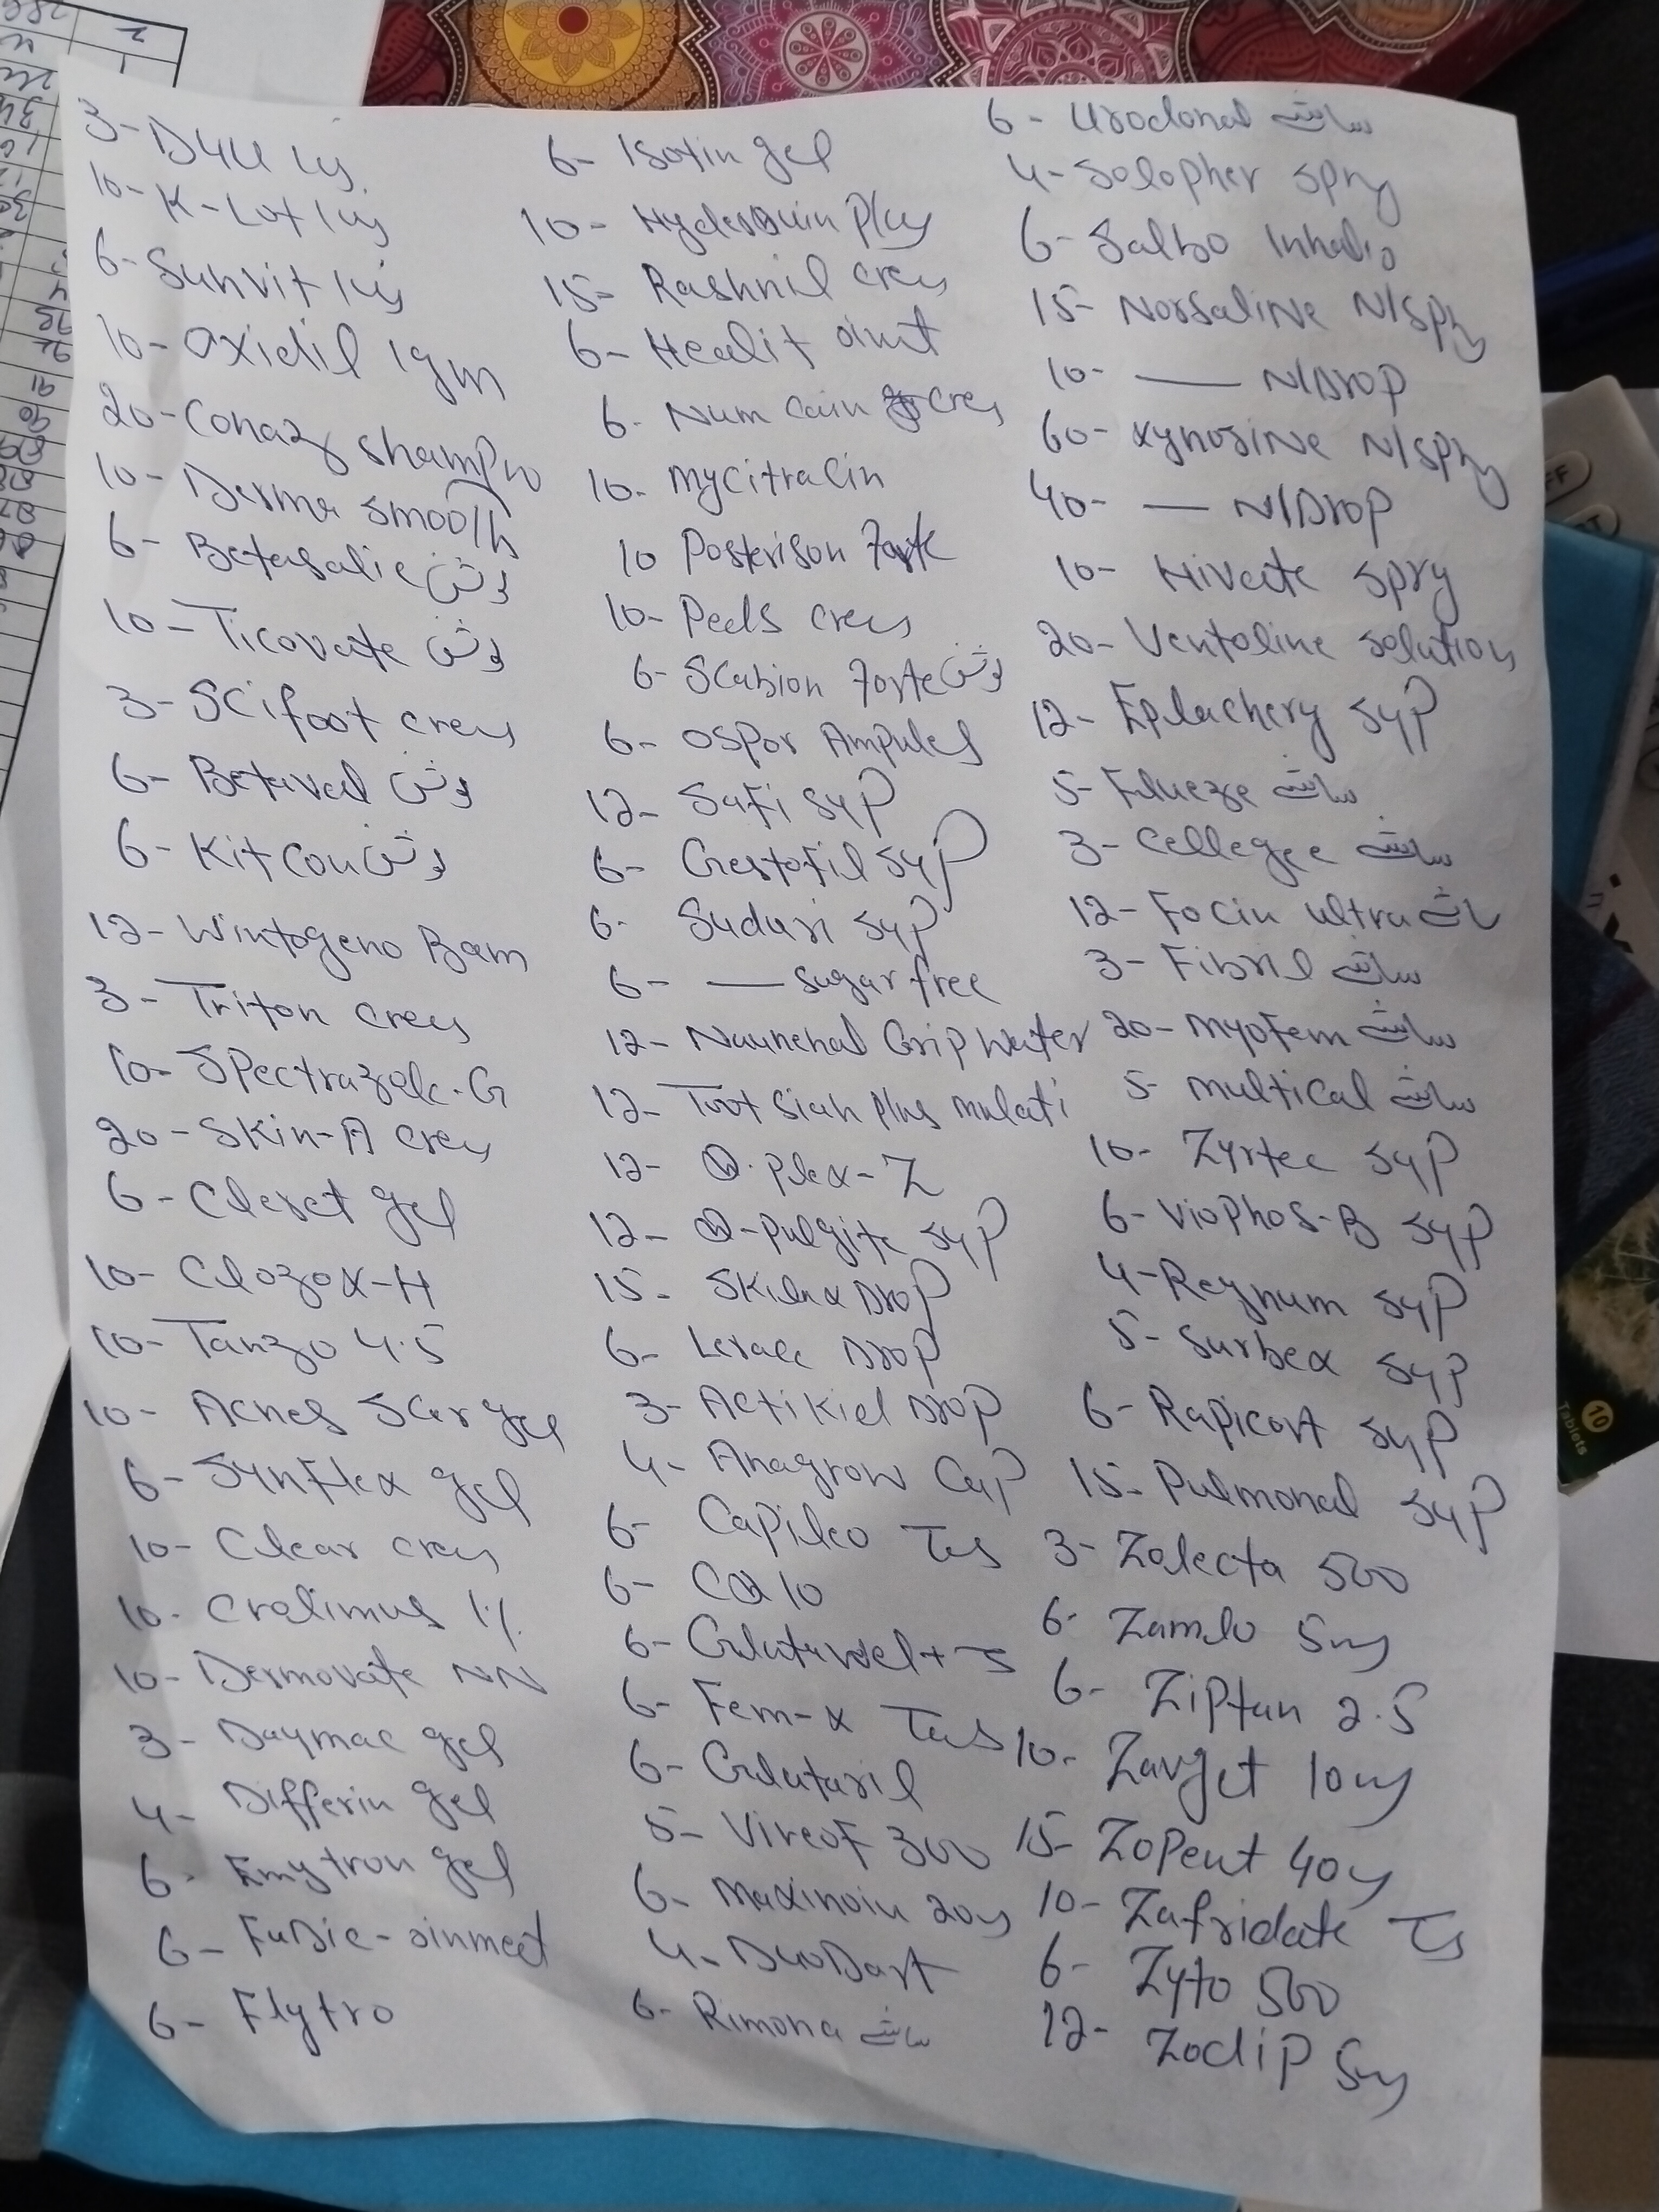 3- D4U Inj
10- K-Lot Inj
6- Sunvit Inj
10- Oxidil 1gm
20- Conaz shampoo
10- Derma smooth
6- Betasalic لوشن
10- Ticovate لوشن
3- Scifoot cream
6- Betaval لوشن
6- Kitcon لوشن
12- Wintogeno Bam
3- Triton cream
10- Spectrazole-G
20- Skin-A cream
6- Cleret gel
10- Clozox-H
10- Tanzo 4.5
10- Acnes Scar gel
6- Synflex gel
10- Clear cream
10- Crolimus 1%
10- Dermovate NN
3- Daymac gel
4- Differin gel
6- Emytron gel
6- Fudic-oinment
6- Flytro
6- Isotin gel
10- Hydroquin Plus
15- Rashnil cream
6- Healit oint
6- Num cain cream
10- Mycitracin
10 Posterison Forte
10- Peels cream
6- Scabion Forte لوشن
6- Ospor Ampules
12- Safi syp
6- Crestofil syp
6- Suduri syp
6- —— sugar free
12- Naunehal Grip Water
12- Toot Siah Plus mulati
12- Q-plex-Z
12- Q-pulgite syp
15- Skilax Drop
6- Lerace Drop
3- Actikid Drop
4- Anagrow Cap
6- Capilco Tab
6- CQ10
6- Fem-x Tab
6- Glutaril
5- Vireof 300
6- Maxinoin 20mg
4- DuoDart
6- Rimona ساشے
6- Urodonal ساشے
4- Solopher spry
6- Salbo Inhalio
15- Norsaline N/spry
10- —— N/Drop
60- Xynosine N/spry
40- —— N/Drop
10- Hivate spry
20- Ventoline solution
12- Eplachery syp
5- Flueze ساشے
3- Cellegee ساشے
12- Focin ultra ساشے
3- Fibril ساشے
20- Myofem ساشے
5- Multical ساشے
10- Zyrtec syp
6- Viophos-B syp
4- Regnum syp
5- Surbex syp
6- Rapicort syp
15- Pulmonal syp
3- Zolecta 500
6- Zamlo 5mg
6- Ziptan 2.5
10- Zavget 10mg
15- Zopent 40mg
10- Zafridate Tab
6- Zyto 500
12- Zoclip 5mg
10
Tablets